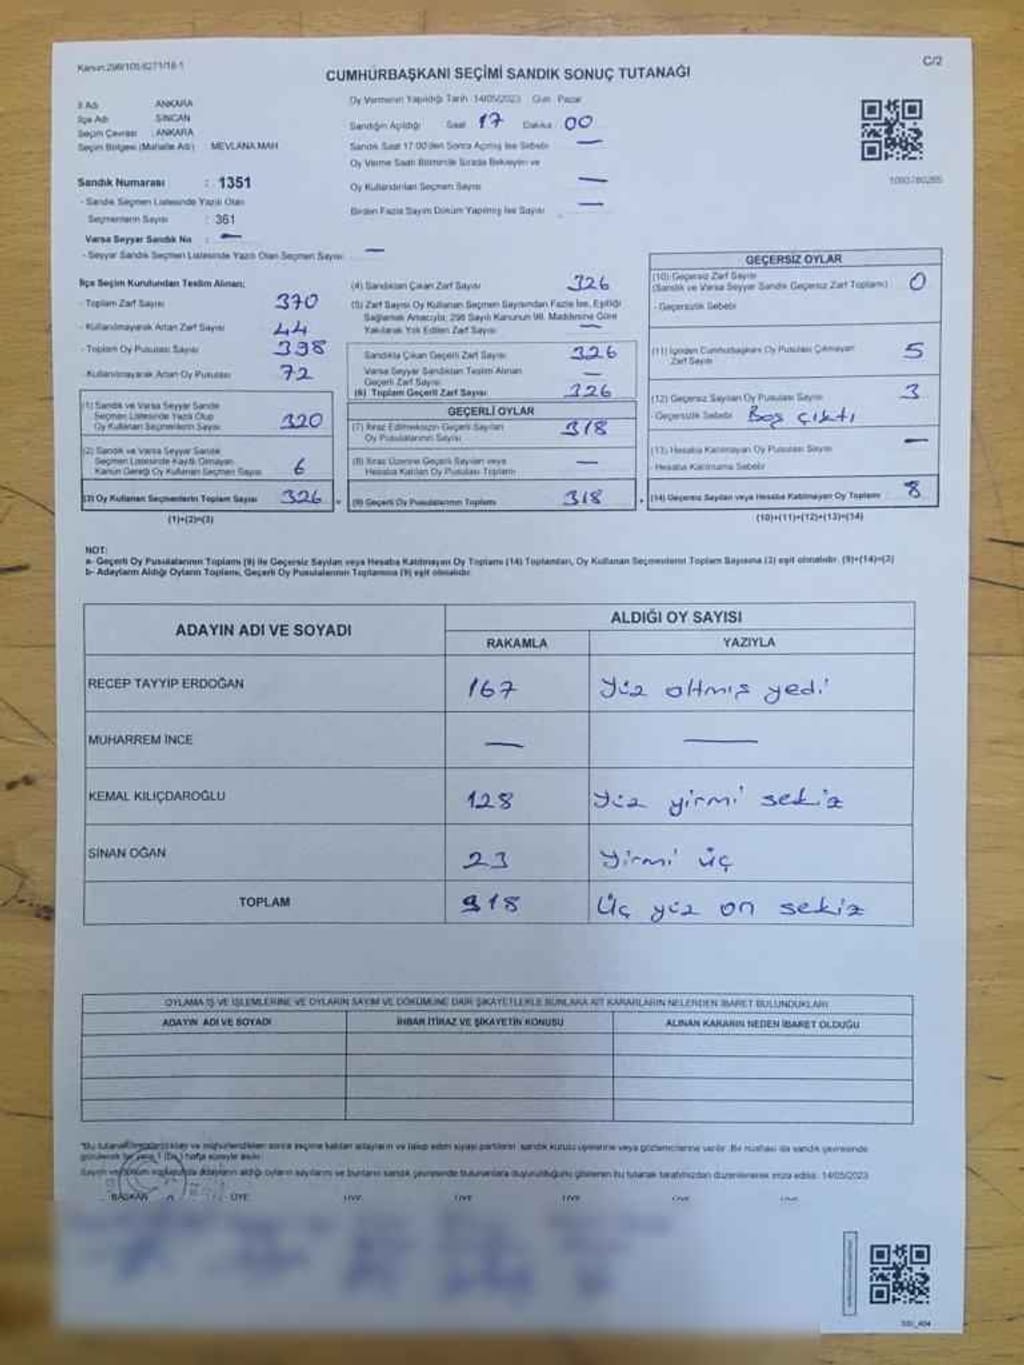 Kanun:298/105/6271/18-1
C/2
CUMHURBAŞKANI SEÇİMİ SANDIK SONUÇ TUTANAĞI
İl Adı ANKARA
İlçe Adı SİNCAN
Seçim Çevresi : ANKARA
Seçim Bölgesi (Mahalle Adı) : MEVLANA MAH
Sandık Numarası : 1351
- Sandık Seçmen Listesinde Yazılı Olan
Seçmenlerin Sayısı : 361
Varsa Seyyar Sandık No : —
- Seyyar Sandık Seçmen Listesinde Yazılı Olan Seçmen Sayısı —
Oy Vermenin Yapıldığı Tarih :14/05/2023 Gün : Pazar
Sandığın Açıldığı Saat 17 Dakika 00
Sandık Saat 17:00'den Sonra Açılmış İse Sebebi —
Oy Verme Saati Bitiminde Sırada Bekleyen ve
Oy Kullandırılan Seçmen Sayısı —
Birden Fazla Sayım Döküm Yapılmış İse Sayısı —
İlçe Seçim Kurulundan Teslim Alınan;
- Toplam Zarf Sayısı 370
- Kullanılmayarak Artan Zarf Sayısı 44
- Toplam Oy Pusulası Sayısı 398
- Kullanılmayarak Artan Oy Pusulası 72
(1) Sandık ve Varsa Seyyar Sandık
Seçmen Listesinde Yazılı Olup
Oy Kullanan Seçmenlerin Sayısı 320
(2) Sandık ve Varsa Seyyar Sandık
Seçmen Listesinde Kayıtlı Olmayan
Kanun Gereği Oy Kullanan Seçmen Sayısı 6
(3) Oy Kullanan Seçmenlerin Toplam Sayısı 326
(1)+(2)=(3)
(4) Sandıktan Çıkan Zarf Sayısı 326
(5) Zarf Sayısı Oy Kullanan Seçmen Sayısından Fazla İse, Eşitliği
Sağlamak Amacıyla; 298 Sayılı Kanunun 98. Maddesine Göre
Yakılarak Yok Edilen Zarf Sayısı —
Sandıkta Çıkan Geçerli Zarf Sayısı 326
Varsa Seyyar Sandıktan Teslim Alınan
Geçerli Zarf Sayısı —
(6) Toplam Geçerli Zarf Sayısı 326
GEÇERLİ OYLAR
(7) İtiraz Edilmeksizin Geçerli Sayılan
Oy Pusulalarının Sayısı 318
(8) İtiraz Üzerine Geçerli Sayılan veya
Hesaba Katılan Oy Pusulası Toplamı —
(9) Geçerli Oy Pusulalarının Toplamı 318
GEÇERSİZ OYLAR
(10) Geçersiz Zarf Sayısı
(Sandık ve Varsa Seyyar Sandık Geçersiz Zarf Toplamı) 0
- Geçersizlik Sebebi
(11) İçinden Cumhurbaşkanı Oy Pusulası Çıkmayan
Zarf Sayısı 5
(12) Geçersiz Sayılan Oy Pusulası Sayısı 3
- Geçersizlik Sebebi Boş çıktı
(13) Hesaba Katılmayan Oy Pusulası Sayısı —
- Hesaba Katılmama Sebebi
(14) Geçersiz Sayılan veya Hesaba Katılmayan Oy Toplamı 8
(10)+(11)+(12)+(13)=(14)
1093780285
NOT:
a- Geçerli Oy Pusulalarının Toplamı (9) ile Geçersiz Sayılan veya Hesaba Katılmayan Oy Toplamı (14) Toplamları, Oy Kullanan Seçmenlerin Toplam Sayısına (3) eşit olmalıdır. (9)+(14)=(3)
b- Adayların Aldığı Oyların Toplamı, Geçerli Oy Pusulalarının Toplamına (9) eşit olmalıdır.
ADAYIN ADI VE SOYADI ALDIĞI OY SAYISI
RAKAMLA YAZIYLA
RECEP TAYYİP ERDOĞAN 167 Yüz altmış yedi
MUHARREM İNCE — —
KEMAL KILIÇDAROĞLU 128 Yüz yirmi sekiz
SİNAN OĞAN 23 Yirmi üç
TOPLAM 318 Üç yüz on sekiz
OYLAMA İŞ VE İŞLEMLERİNE VE OYLARIN SAYIM VE DÖKÜMÜNE DAİR ŞİKAYETLERLE BUNLARA AİT KARARLARIN NELERDEN İBARET BULUNDUKLARI
ADAYIN ADI VE SOYADI İHBAR İTİRAZ VE ŞİKAYETİN KONUSU ALINAN KARARIN NEDEN İBARET OLDUĞU
ve mühürlendikten sonra seçime katılan adayların ve talep eden siyasi partilerin sandık kurulu üyelerine veya gözlemcilerine verilir. Bir nüshası da sandık çevresinde
hafta süreyle asılır.
adayların aldığı oyların sayılarını ve bunların sandık çevresinde bulunanlara duyurulduğunu gösteren bu tutanak tarafımızdan düzenlenerek imza edildi. 14/05/2023
BAŞKAN ÜYE ÜYE ÜYE ÜYE ÜYE ÜYE